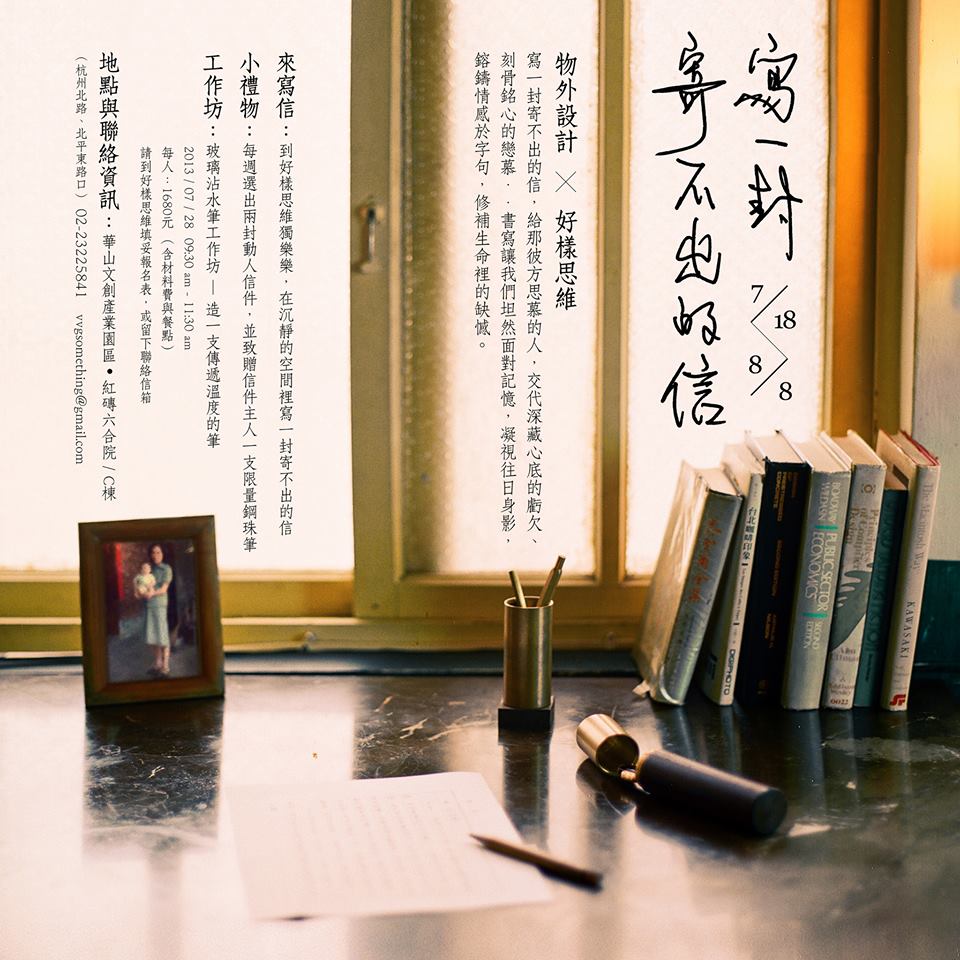 寫一封
寄不出的信
7/18
8/8
物外設計 × 好樣思維
寫一封寄不出的信，給那彼方思慕的人，交代深藏心底的虧欠、
刻骨銘心的戀慕．．書寫讓我們坦然面對記憶，凝視往日身影，
鎔鑄情感於字句，修補生命裡的缺憾。
來寫信：到好樣思維獨樂樂，在沉靜的空間裡寫一封寄不出的信
小禮物：每週選出兩封動人信件，並致贈信件主人一支限量鋼珠筆
工作坊：玻璃沾水筆工作坊 — 造一支傳遞溫度的筆
2013 / 07 / 28 09:30 am - 11:30 am
每人：1680元（含材料費與餐點）
請到好樣思維填妥報名表，或留下聯絡信箱
地點與聯絡資訊：華山文創產業園區 • 紅磚六合院 / C棟
（杭州北路、北平東路口） 02-23225841 vvgsomething@gmail.com
台北咖啡印象
DESPHOTO
PUBLIC SECTOR
ECONOMICS
SECOND
EDITION
KAWASAKI
0022